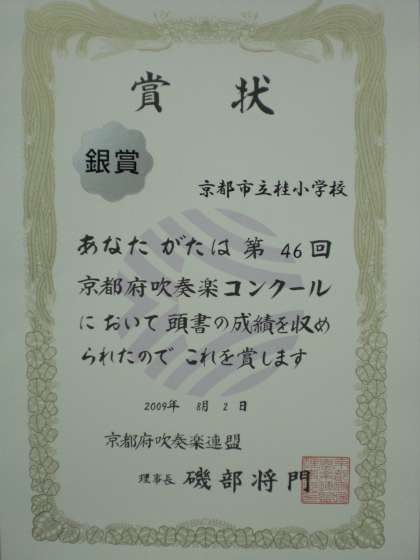 賞状
銀賞
京都市立桂小学校
あなたがたは第46回
京都府吹奏楽コンクール
において頭書の成績を収め
られたのでこれを賞します
2009年 8月 2日
京都府吹奏楽連盟
理事長 磯部将門